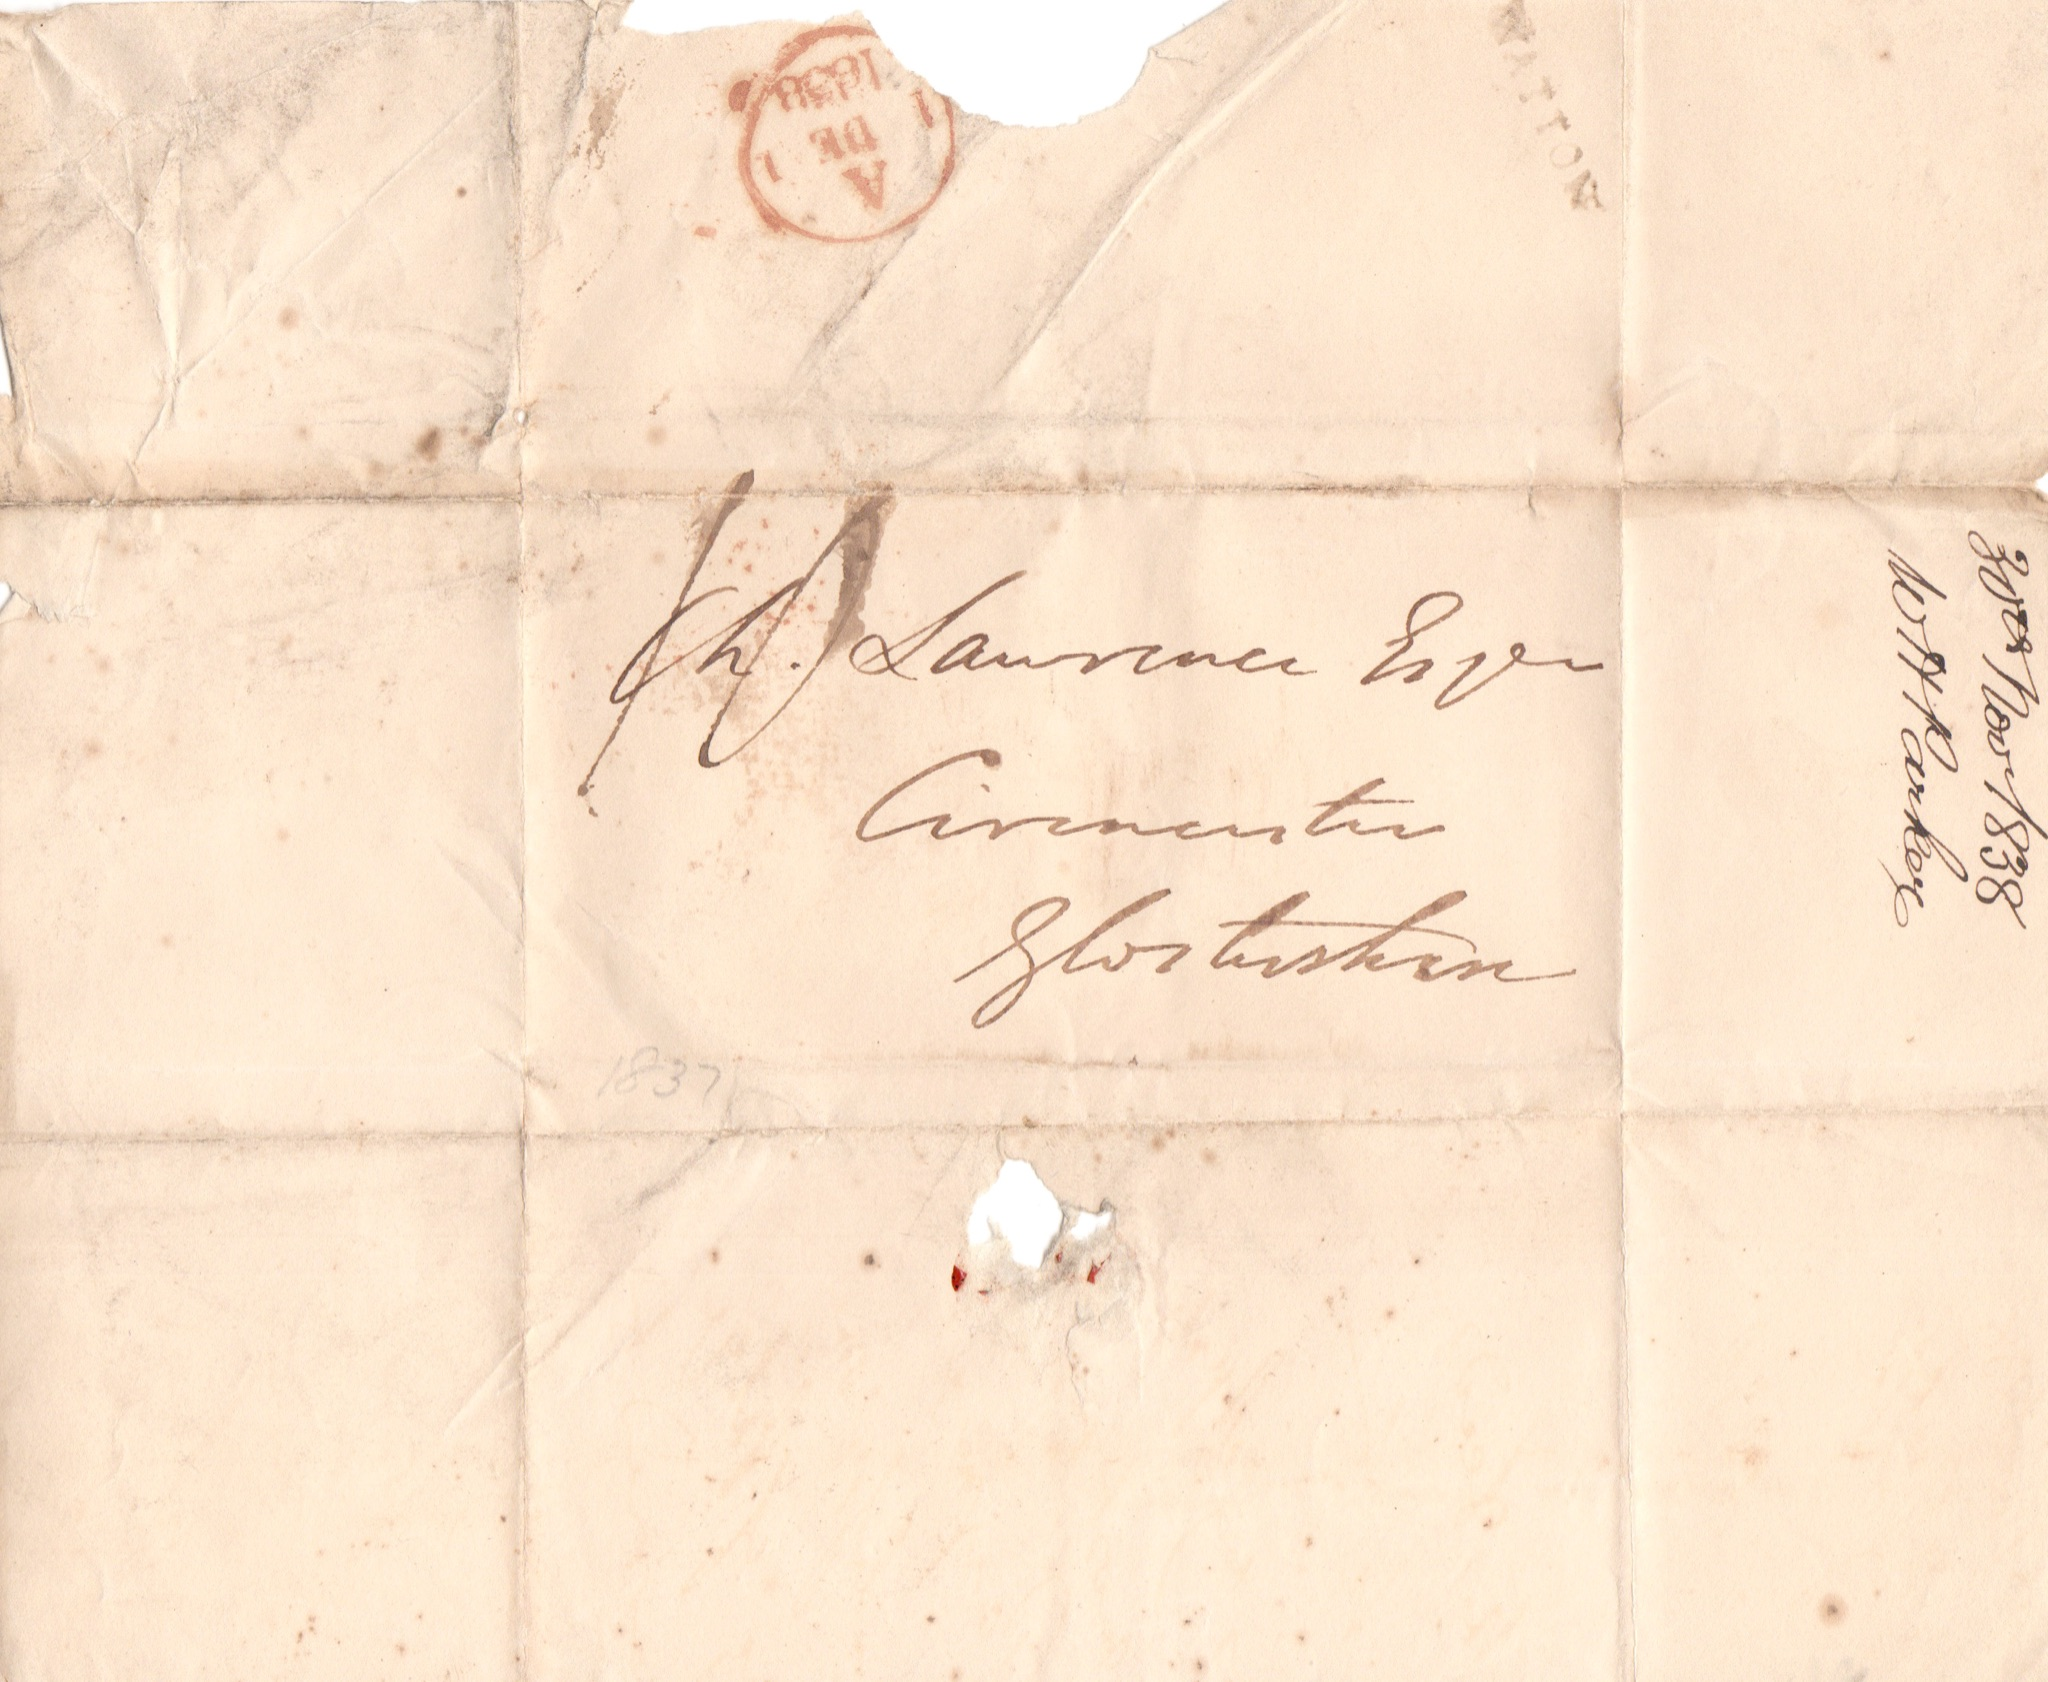 A
DE
1 1
1838
WATTON
Ch. Lawrence Esqre
Cirencester
Glostershire
1837
Novr 1838
W H Parkey